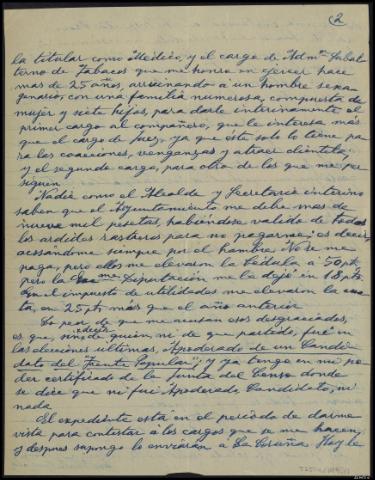 2
la titular como Médico, y el cargo de Admor. Subal-
terno de Tabacos que me honro en ejercer hace
mas de 25 años, arruinando á un hombre sexa-
genario con una familia numerosa, compuesta de
mujer y siete hijos, para darle interinamente el
primer cargo al compañero, que le interesa más
que el cargo de Juez, ya que éste solo lo tiene pa
ra las coacciones, venganzas y atraer clientela;
y el segundo cargo, para otro de los que me per-
siguen.
Nadie como el Alcalde y Secretario interino
saben que el Ayuntamiento me debe mas de
nueve mil pesetas, habiéndose valido de todos
los ardides rastreros para no pagarme; es decir,
acosándome siempre por el hambre. No se me
paga, pero ellos me elevaron la Cédula á 50 pts
pero la Diputación me la dejó en 18 pts.
En el impuesto de utilidades me elevaron la cuo
ta, en 25 pts más que el año anterior
Lo peor de que me acusan esos desgraciados,
es que, sin decir de quién, ni de que partido, fuí en
las elecciones ultimas, Apoderado de un Candi-
dato del "Frente Popular"; y ya tengo en mi po
der certificado de la Junta del Censo donde
se dice que ni fuí Apoderado, Candidato, ni
nada
El expediente está en el período de darme
vista para contestar á los cargos que se me hacen,
y despues supongo lo enviarán á La Coruña Hoy le